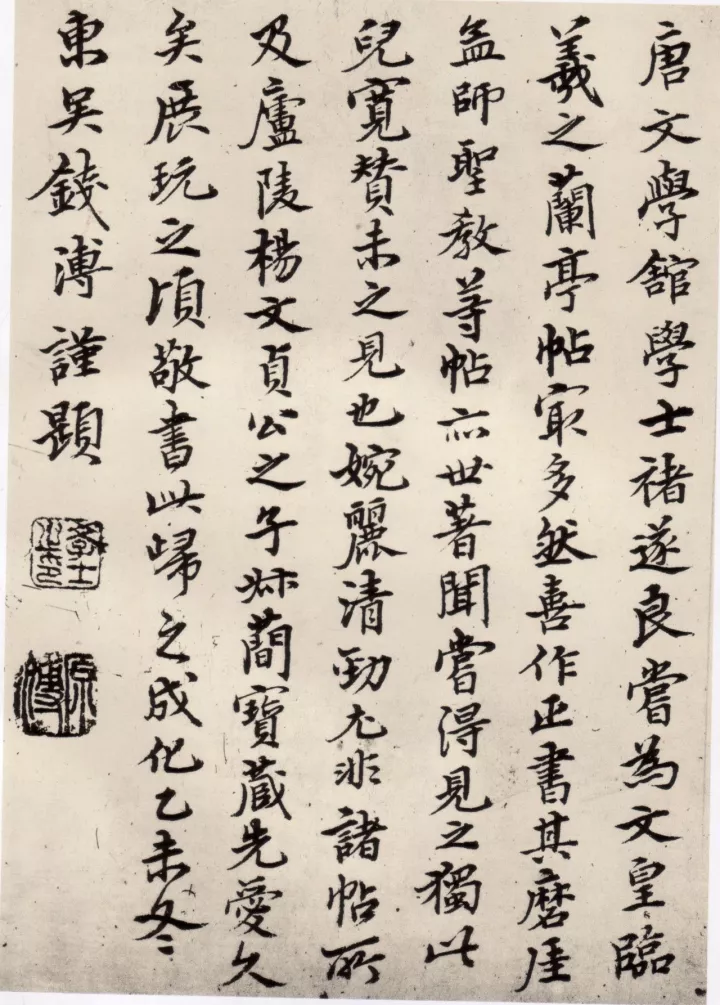 唐文學舘學士褚遂良嘗為文皇臨
羲之蘭亭帖冣多然喜作正書其磨厓
孟師聖教等帖亦世著聞嘗得見之獨此
兒寛賛未之見也婉麗清勁尤非諸帖所
及廬陵楊文貞公之子叔蕳寶蔵先愛久
矣展玩之頃敬書此歸之成化乙未冬
東吴錢溥謹題
學士
原溥